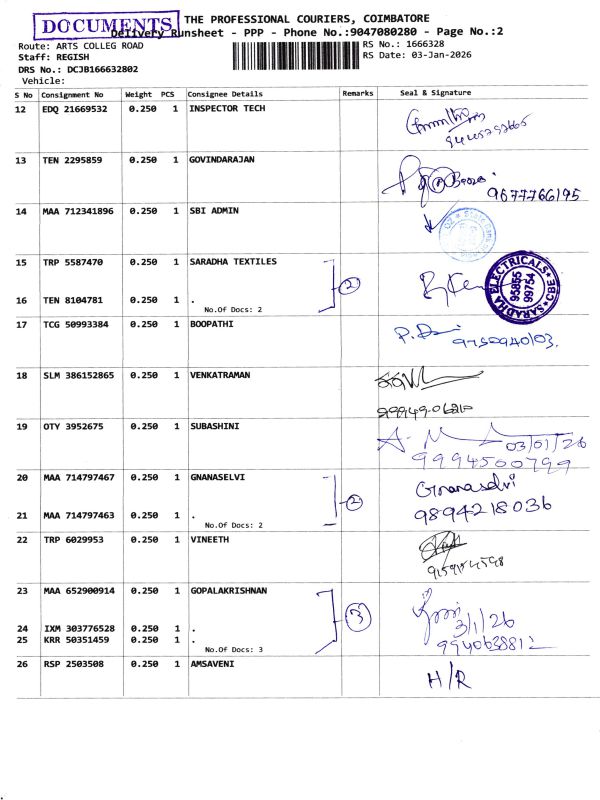 DOCUMENTS
THE PROFESSIONAL COURIERS, COIMBATORE
Delivery Runsheet - PPP - Phone No.:9047080280 - Page No.:2
Route: ARTS COLLEG ROAD
RS No.: 1666328
Staff: REGISH
RS Date: 03-Jan-2026
DRS No.: DCJB166632802
Vehicle:
S No Consignment No Weight PCS Consignee Details Remarks Seal & Signature
12 EDQ 21669532 0.250 1 INSPECTOR TECH
13 TEN 2295859 0.250 1 GOVINDARAJAN
9677766195
14 MAA 712341896 0.250 1 SBI ADMIN
15 TRP 5587470 0.250 1 SARADHA TEXTILES
2
SARADHA ELECTRICALS CBE
95855
99754
16 TEN 8104781 0.250 1 .
No.Of Docs: 2
17 TCG 50993384 0.250 1 BOOPATHI
18 SLM 386152865 0.250 1 VENKATRAMAN
19 OTY 3952675 0.250 1 SUBASHINI
03/01/26
9994500799
20 MAA 714797467 0.250 1 GNANASELVI
2 Gnanaselvi
9894218036
21 MAA 714797463 0.250 1 .
No.Of Docs: 2
22 TRP 6029953 0.250 1 VINEETH
23 MAA 652900914 0.250 1 GOPALAKRISHNAN
3
3/1/26
9940638812
24 IXM 303776528 0.250 1 .
25 KRR 50351459 0.250 1 .
No.Of Docs: 3
26 RSP 2503508 0.250 1 AMSAVENI
H/R